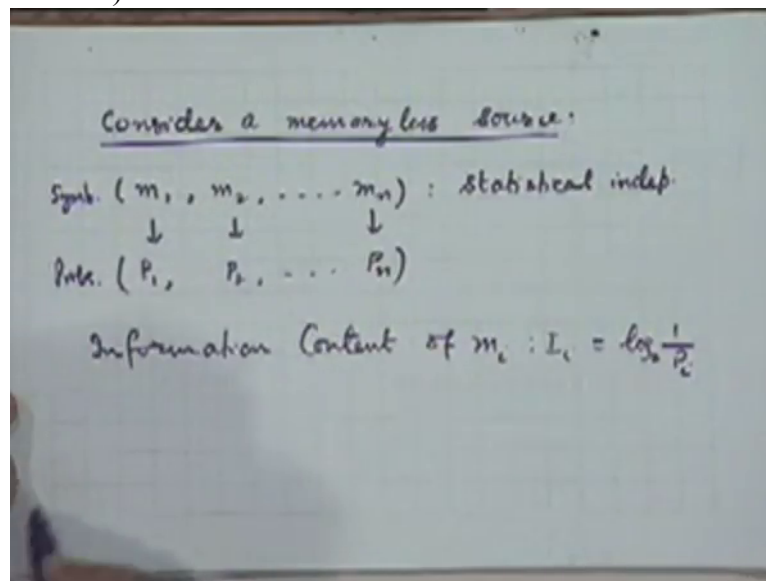 Consider a memoryless source:
Symb. (m₁, m₂, .... mₙ) : Statistical indep.
↓ ↓ ↓
Prob. (P₁, P₂, ... Pₙ)
Information Content of mᵢ : Iᵢ = log₂ 1/Pᵢ